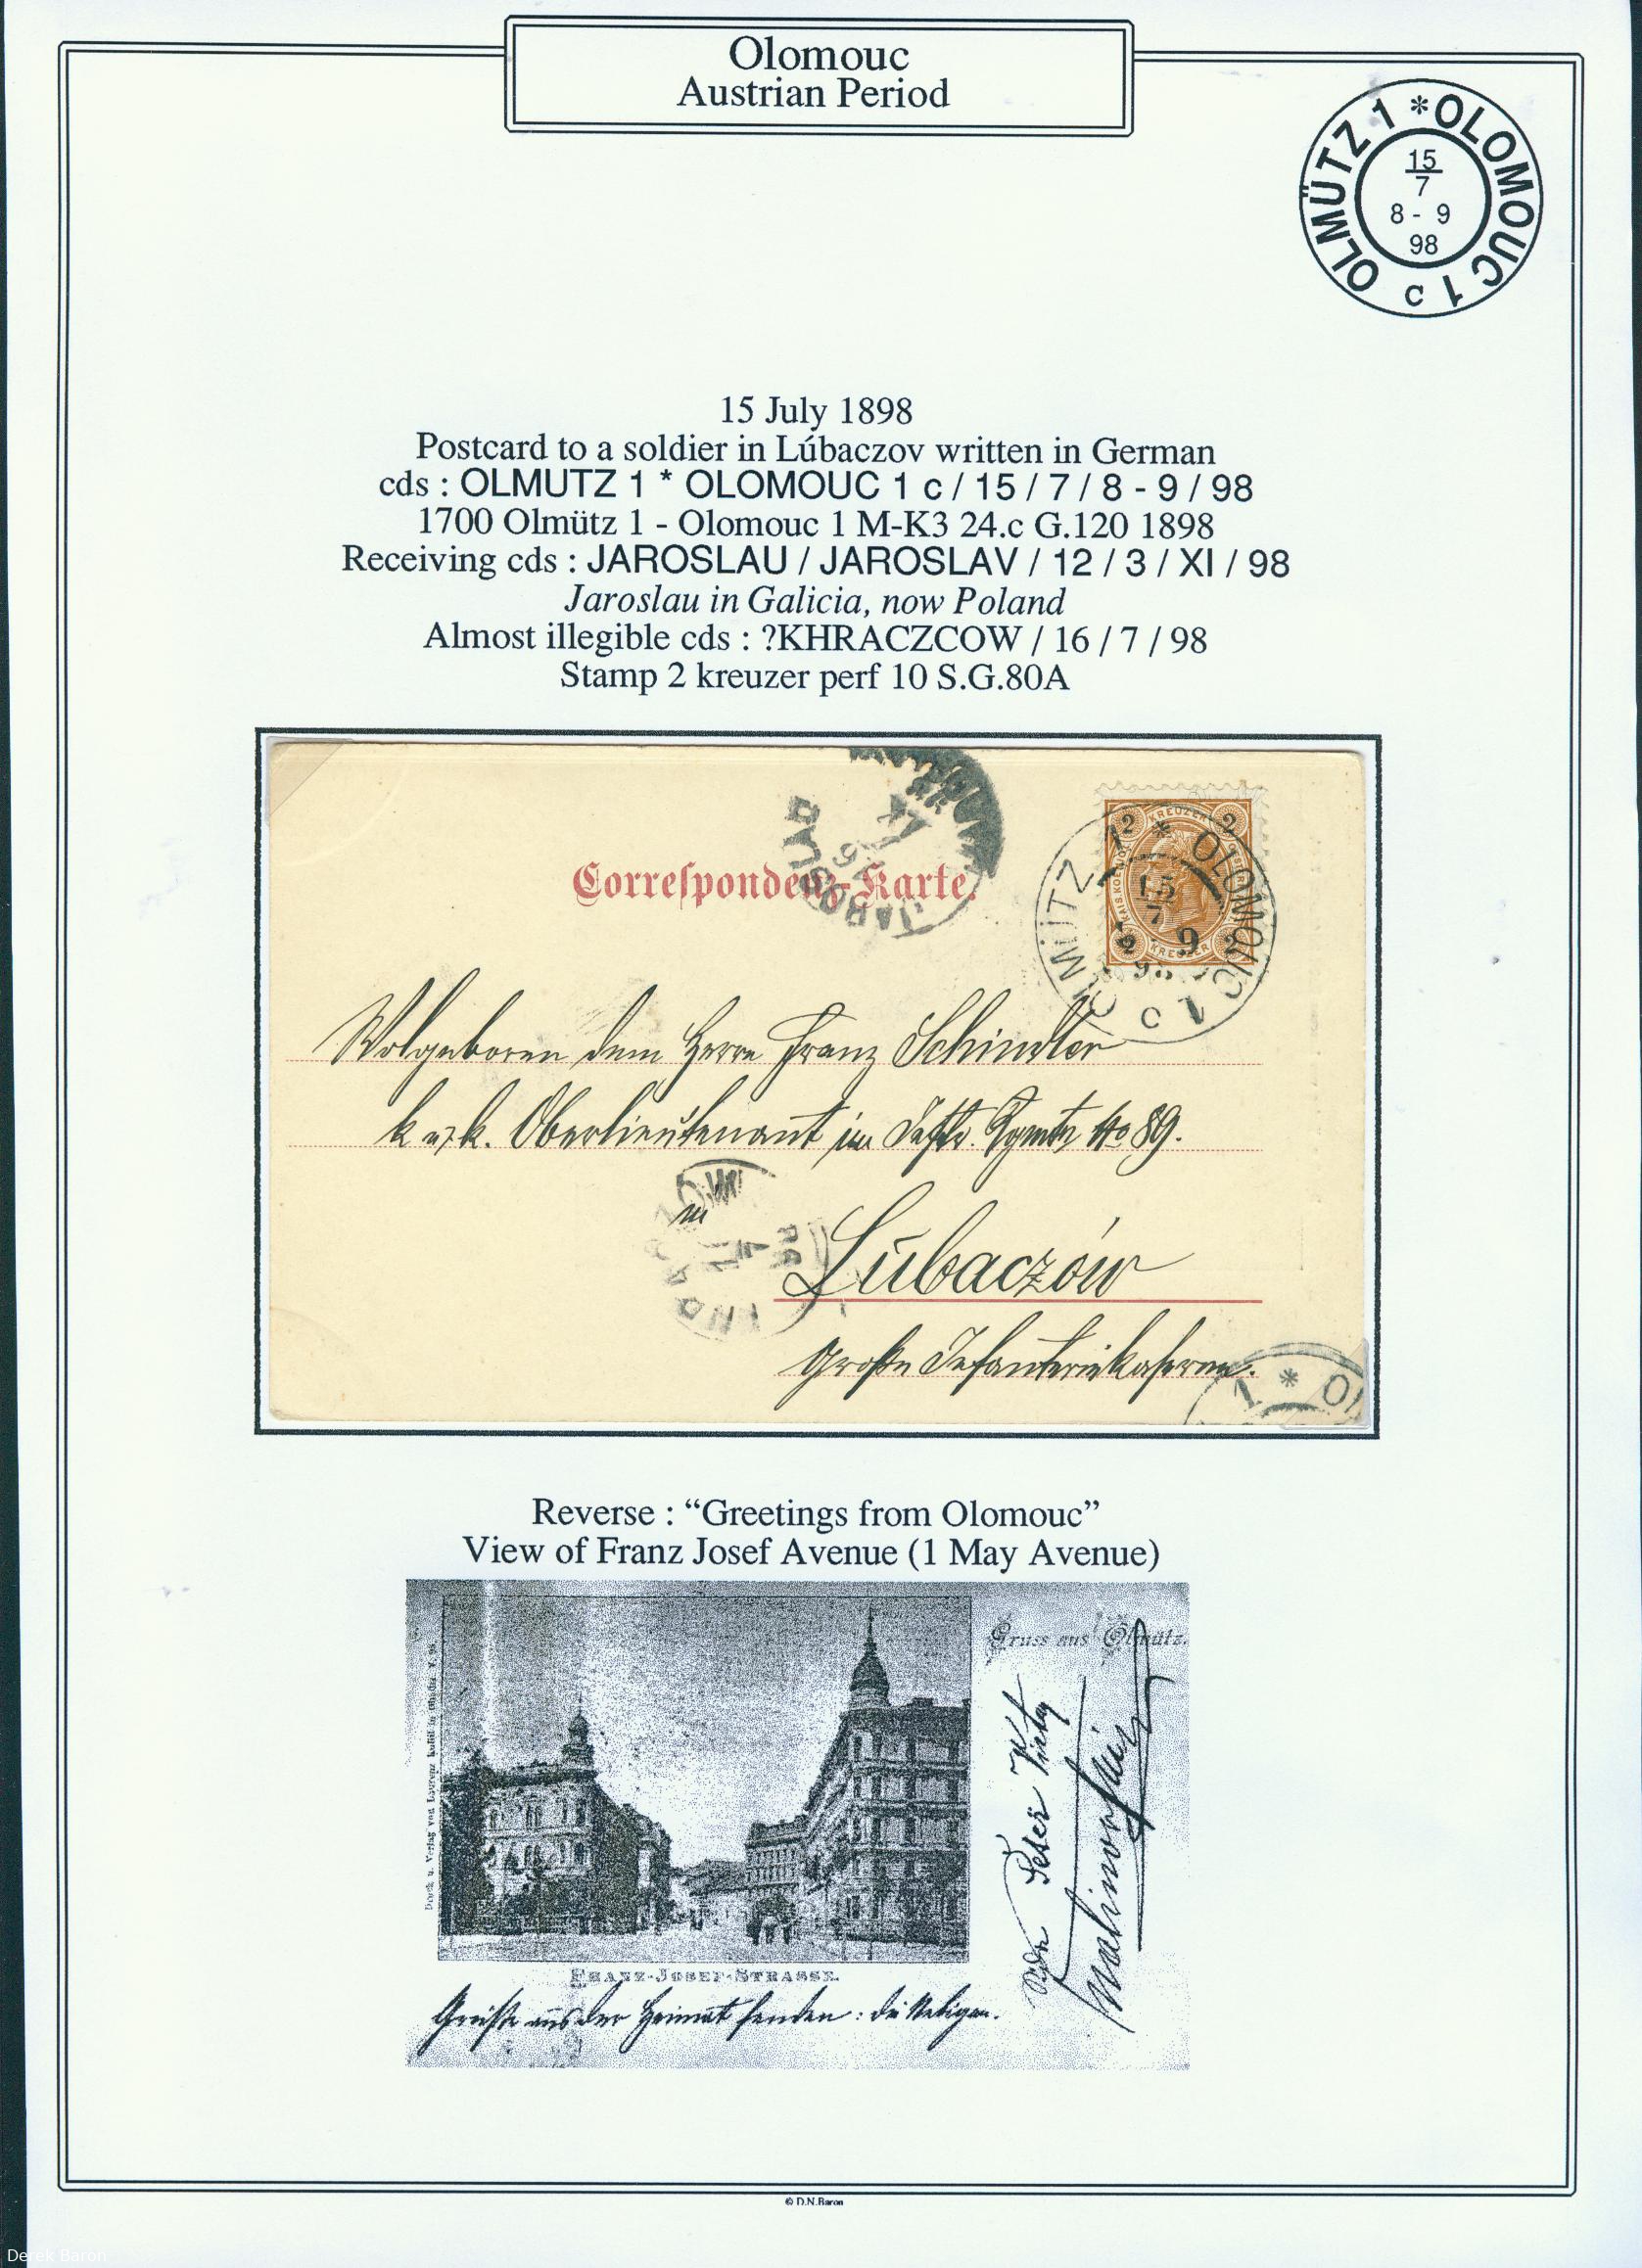 Olomouc
Austrian Period
OLMÜTZ 1 * OLOMOUC 1 c
15
7
8 - 9
98
15 July 1898
Postcard to a soldier in Lúbaczov written in German
cds : OLMUTZ 1 * OLOMOUC 1 c / 15 / 7 / 8 - 9 / 98
1700 Olmütz 1 - Olomouc 1 M-K3 24.c G.120 1898
Receiving cds : JAROSLAU / JAROSLAV / 12 / 3 / XI / 98
Jaroslau in Galicia, now Poland
Almost illegible cds : ?KHRACZCOW / 16 / 7 / 98
Stamp 2 kreuzer perf 10 S.G.80A
Correspondenz-Karte.
2 KREUZER 2
OLMÜTZ 1 * OLOMOUC 1 c
15
7
9
98
Wolgeboren dem Herrn Franz Schindler
k. u. k. Oberlieutenant im Inftr. Rgmte No 89.
Lúbaczów
große Infanteriekaserne.
1 * OL
Reverse : “Greetings from Olomouc”
View of Franz Josef Avenue (1 May Avenue)
Gruss aus Olmütz.
Druck u. Verlag von Lorenz
FRANZ-JOSEF-STRASSE.
Grüße aus der Heimat senden : die
© D.N.Baron
Derek Baron